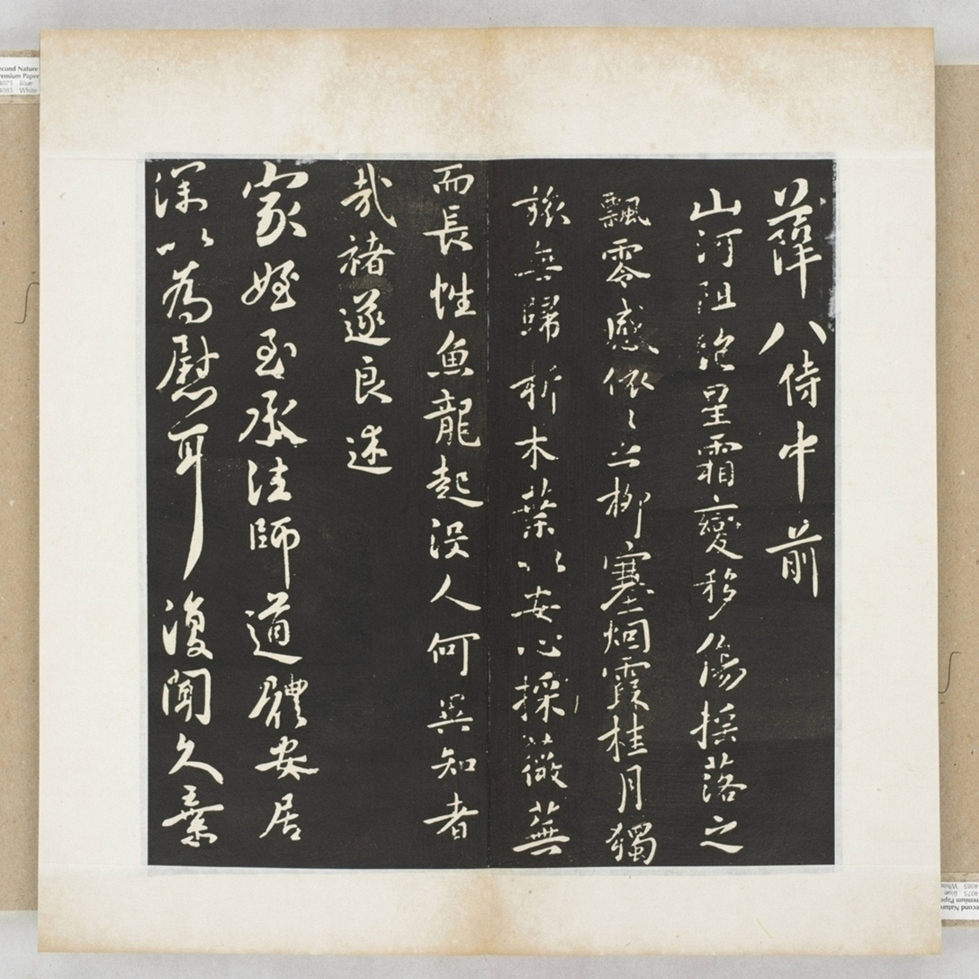 薛八侍中前
山河阻絶星霜變移傷摇落之
飄零感依〻之柳塞烟霞桂月獨
旅無歸折木葉以安心採薇蕪
而長性魚龍起没人何異知者
哉褚遂良述
家姪至承法師道體安居
深以為慰耳復聞久棄
Second Nature
Premium Paper
4075 Blue
4085 White